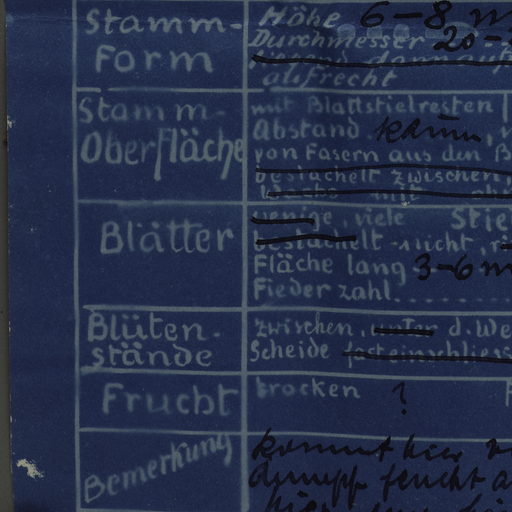 Stamm-
Form
Höhe 6-8 m
Durchmesser 20-
dann auf
aufrecht
Stamm-
Oberfläche
mit Blattstielresten
Abstand kaum,
von Fasern aus den B
bestachelt zwischen
Wachs mit
Blätter
wenige, viele Stiel
bestachelt - nicht,
Fläche lang 3-6 m
Fieder zahl.......
Blüten-
stände
zwischen, unter d. We
Scheide fast einschliess
Frucht
trocken ?
Bemerkung
kommt hier
dumpf feucht a
hier